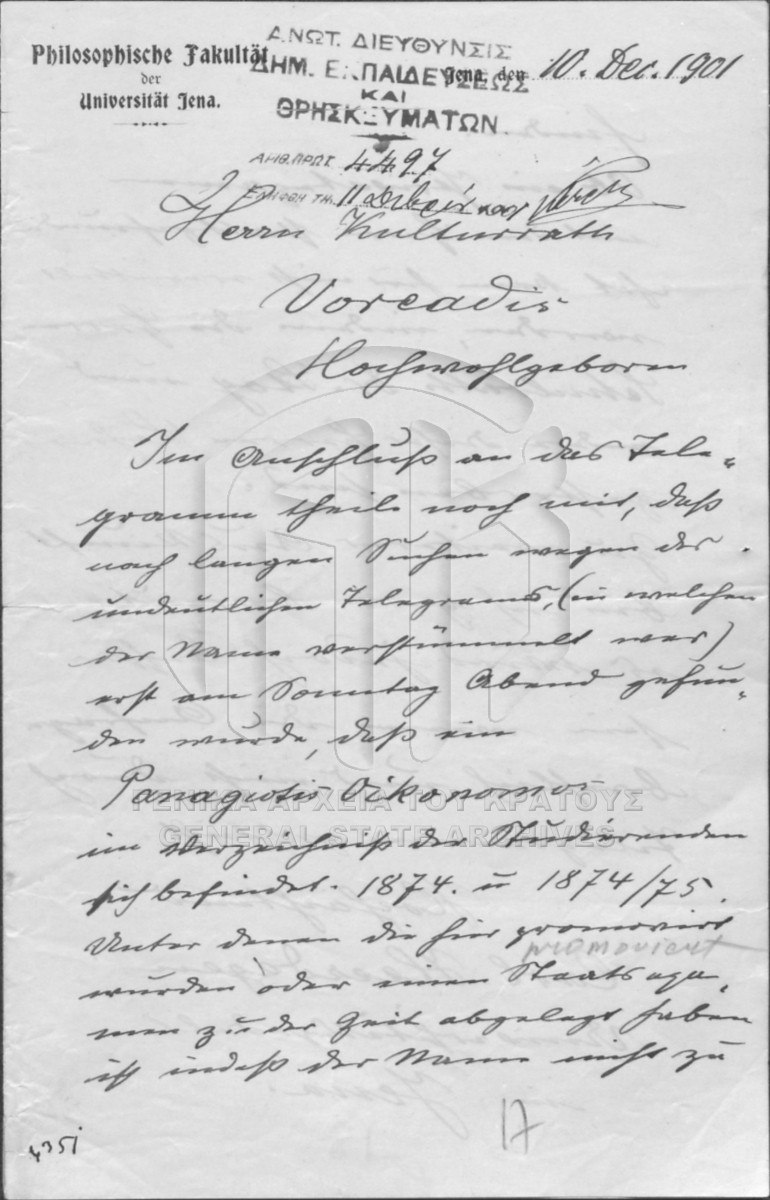 Philosophische Fakultät
der
Universität Jena.
ΑΝΩΤ. ΔΙΕΥΘΥΝΣΙΣ
ΔΗΜ. ΕΚΠΑΙΔΕΥΣΕΩΣ
ΚΑΙ
ΘΡΗΣΚΕΥΜΑΤΩΝ.
Jena, den 10. Dec. 1901
ΑΡΙΘ. ΠΡΩΤ. 4497
ΕΛΗΦΘΗ ΤΗ. 11
Herrn Kulturrath
Vorcadis
Hochwohlgeboren
Im Anschluß an das Tele-
gramm theile noch mit, daß
nach langen Suchen wegen des
undeutlichen Telegrams, (in welchen
der Name verstümmelt war)
erst am Sonntag Abend gefun-
den wurde, daß ein
Panagiotis Oikonomos
ΓΕΝΙΚΑ ΑΡΧΕΙΑ ΤΟΥ ΚΡΑΤΟΥΣ
GENERAL STATE ARCHIVES
im Verzeichniß der Studierenden
sich befindet. 1874. u 1874/75.
Unter denen die hier promovirt
promoviert
wurden oder einen Staatsexa-
men zu der Zeit abgelegt haben
ist indeß der Name nicht zu
17
435